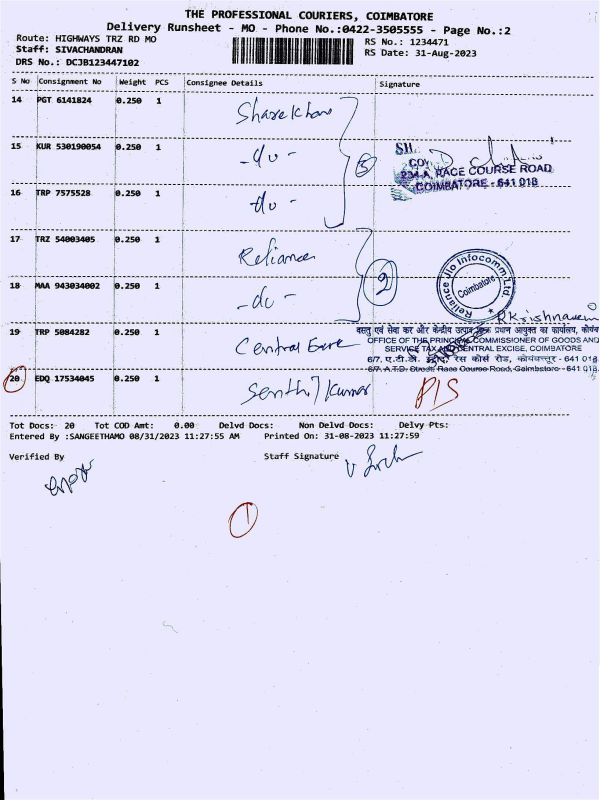 THE PROFESSIONAL COURIERS, COIMBATORE
Delivery Runsheet - MO - Phone No.:0422-3505555 - Page No.:2
Route: HIGHWAYS TRZ RD MO RS No.: 1234471
Staff: SIVACHANDRAN RS Date: 31-Aug-2023
DRS No.: DCJB123447102
S No Consignment No Weight PCS Consignee Details Signature
14 PGT 6141824 0.250 1 Sharekhan
15 KUR 530190054 0.250 1 -do- 3
234-A, RACE COURSE ROAD
COIMBATORE - 641 018
16 TRP 7575528 0.250 1 -do-
17 TRZ 54003405 0.250 1 Reliance
18 MAA 943034002 0.250 1 -do- 2
Reliance Jio Infocomm Ltd.
Coimbatore
19 TRP 5084282 0.250 1 Central
OFFICE OF THE PRINCIPAL COMMISSIONER OF GOODS AND
SERVICE TAX AND CENTRAL EXCISE, COIMBATORE
6/7, ए.टी.डी. स्ट्रीट, रेस कोर्स रोड, कोयंबत्तूर - 641 018
6/7, A.T.D. Street, Race Course Road, Coimbatore - 641 018.
20 EDQ 17534045 0.250 1 Senthil Kumar P/S
Tot Docs: 20 Tot COD Amt: 0.00 Delvd Docs: Non Delvd Docs: Delvy Pts:
Entered By :SANGEETHAMO 08/31/2023 11:27:55 AM Printed On: 31-08-2023 11:27:59
Verified By Staff Signature
1